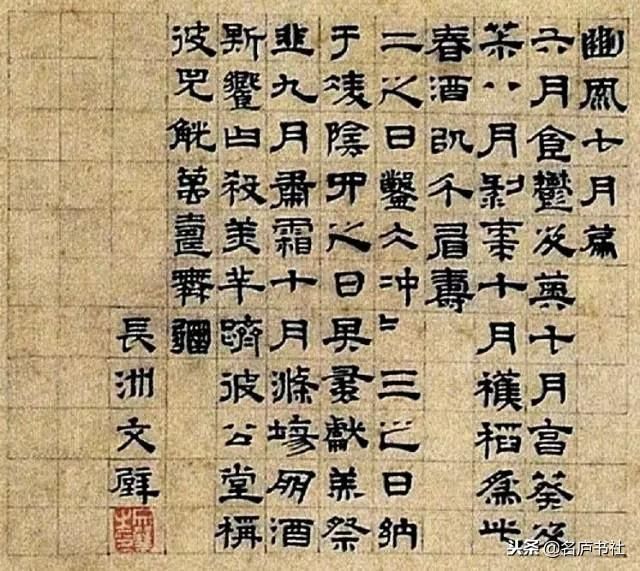 豳風七月篇
六月食鬱及薁七月亨葵及
菽八月剥棗十月穫稻為此
春酒以介眉壽
二之日鑿冰沖〃三之日納
于凌陰四之日其蚤獻羔祭
韭九月肅霜十月滌場朋酒
斯饗曰殺羔羊躋彼公堂稱
彼兕觥萬壽無疆
長洲文璧
头条 @名庐书社